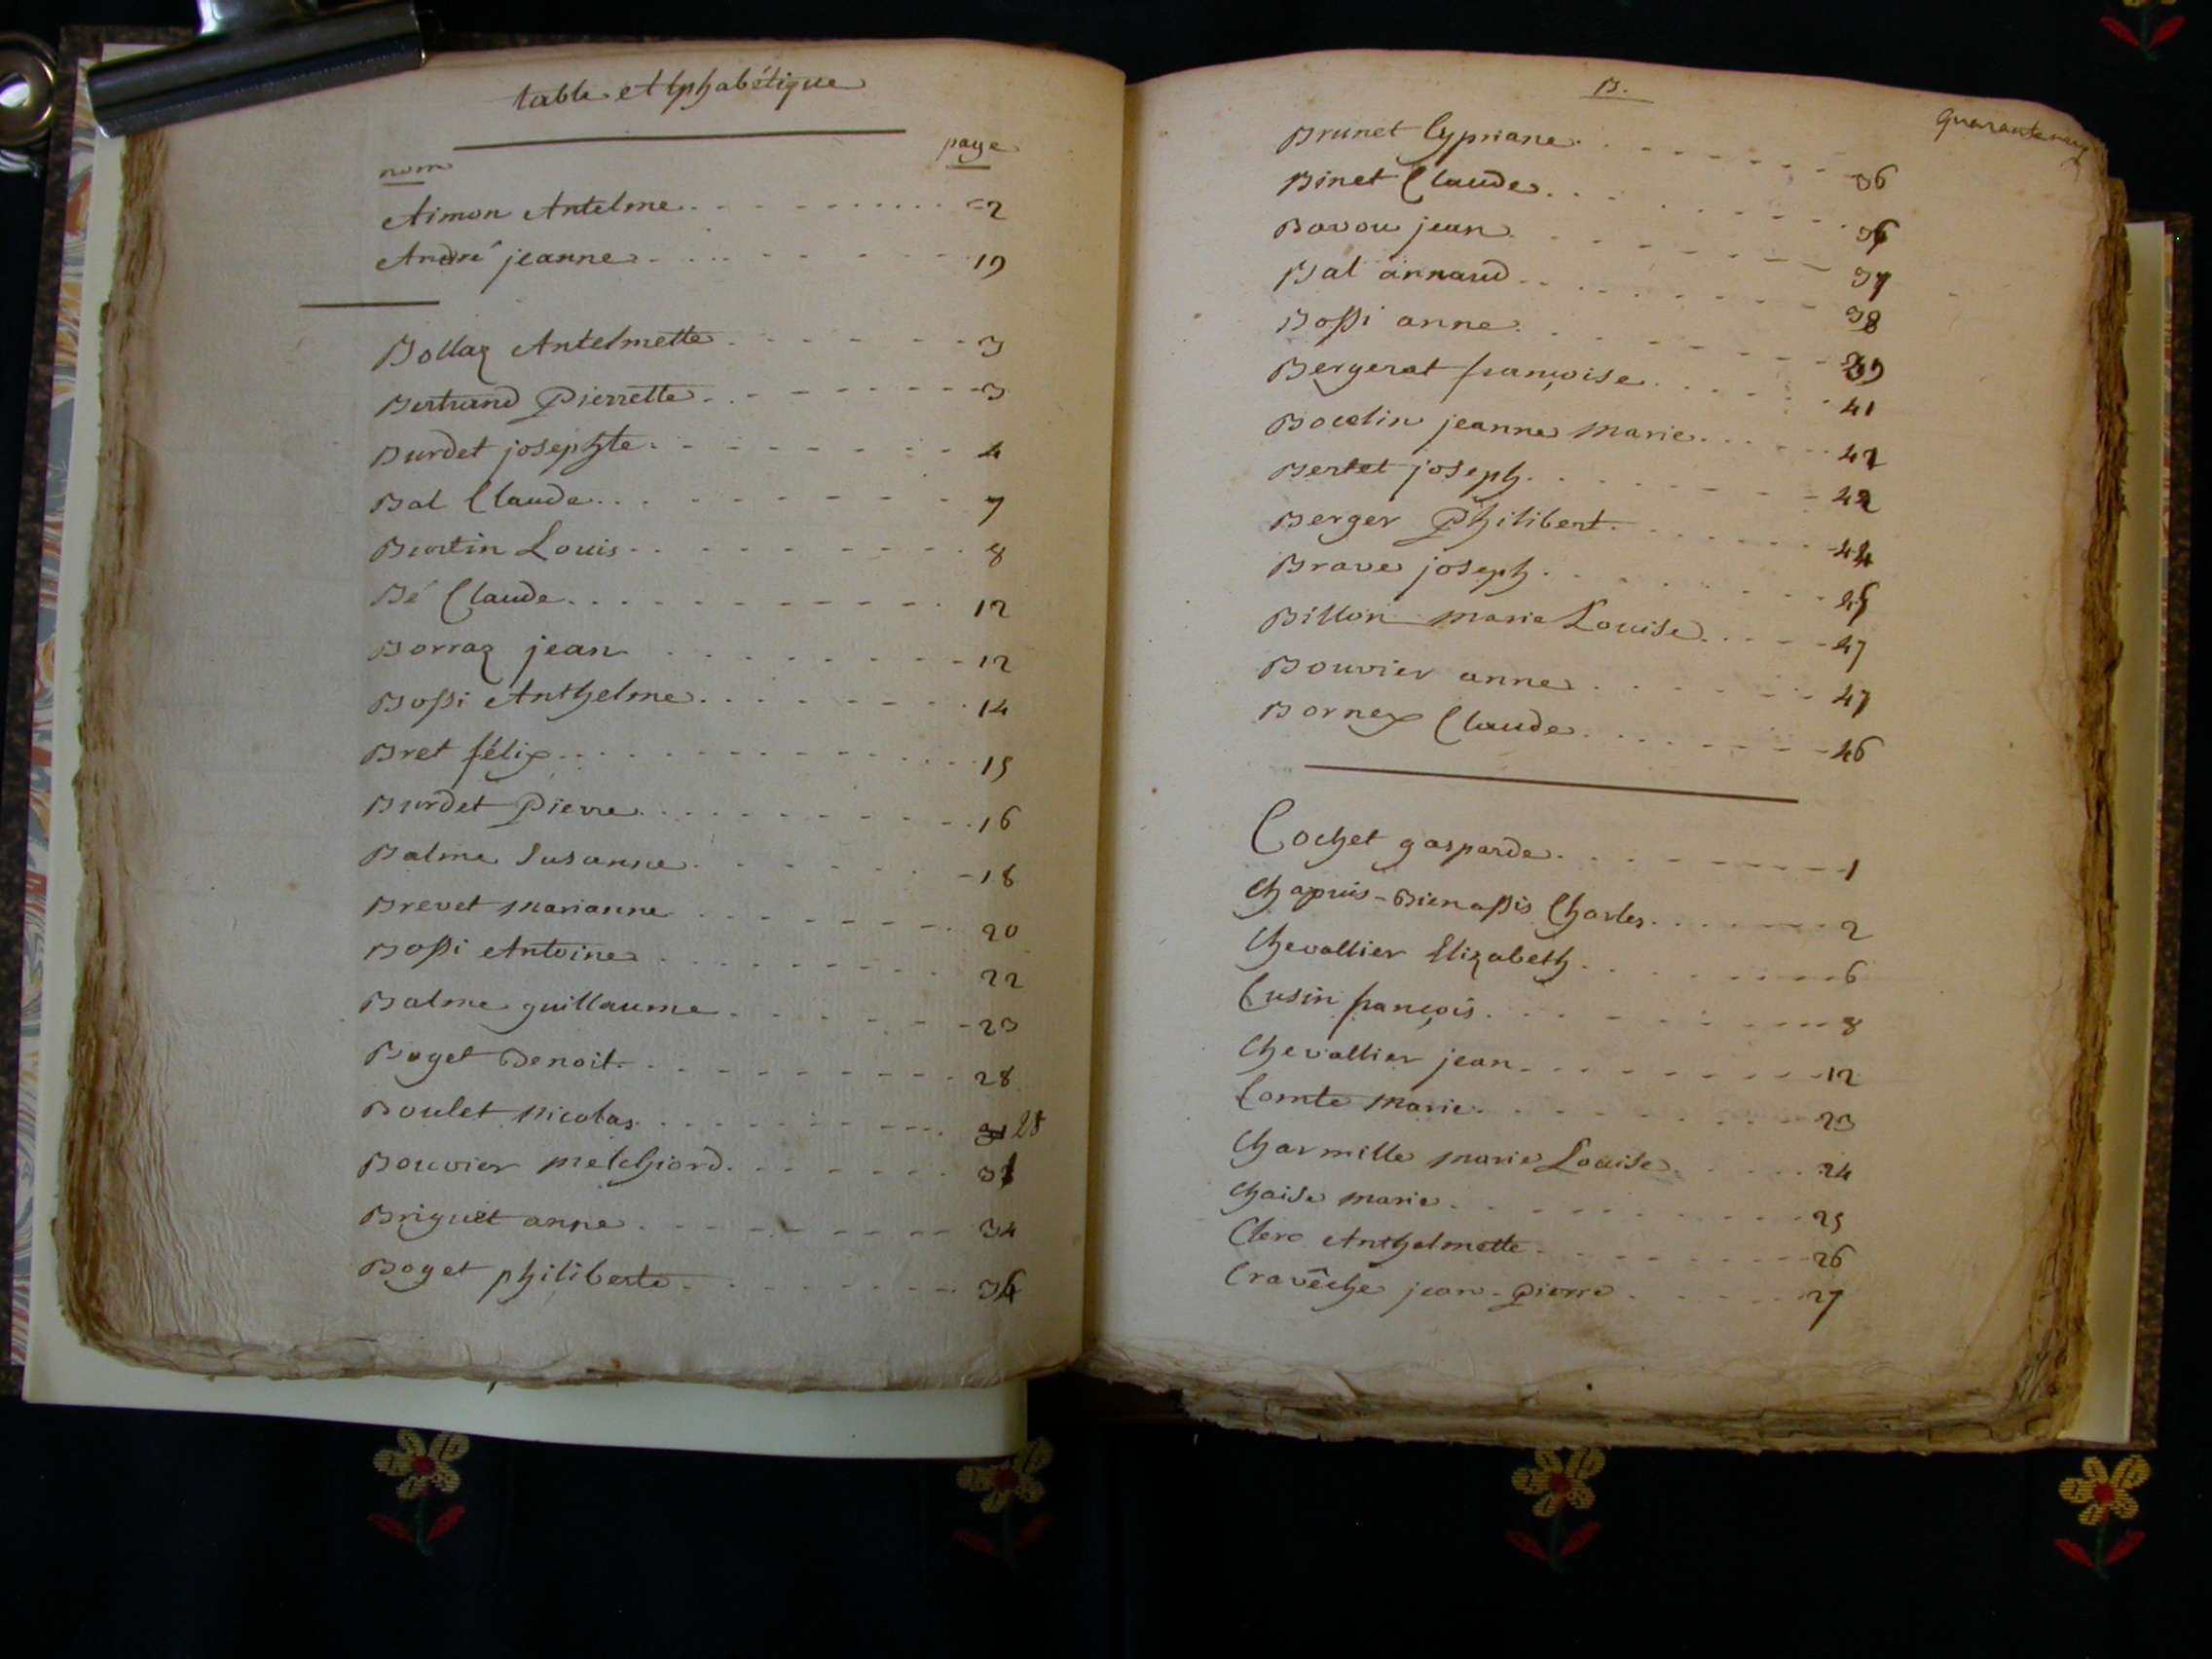 table Alphabétique
nom page
Aimon Antelme 2
André jeanne 19
Bollaz Antelmette 3
Bertrand Pierrette 3
Burdet josephte 4
Bal Claude 7
Burtin Louis 8
Bé Claude 12
Borraz jean 12
Bossi Anthelme 14
Bret félix 15
Burdet Pierre 16
Balme Susanne 18
Brevet marianne 20
Bossi Antoine 22
Balme guillaume 23
Boget Benoit 28
Boulet Nicolas 28
Bouvier melchiord 31
Briguet anne 34
Boget philiberte 34
B.
Brunet Cypriane 36
Binet Claude 36
Bovou jean 37
Bal annaud 38
Bossi anne 39
Bergerat françoise 41
Bocelin jeanne Marie 42
Bertet joseph 42
Berger Philibert 44
Brave joseph 45
Billon marie Louise 47
Bouvier anne 47
Bornex Claude 46
Cochet gasparde 1
Chapuis-Bienassis Charles 2
Chevallier Elizabeth 6
Cusin françois 8
Chevallier jean 12
Comte Marie 23
Charmille marie Louise 24
Chaise marie 25
Clerc Anthelmette 26
Cravêche jean-Pierre 27